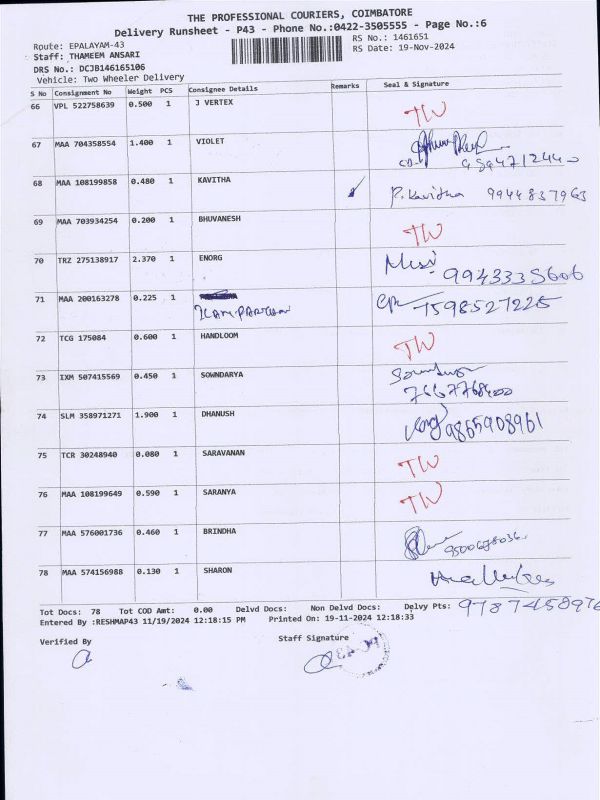 THE PROFESSIONAL COURIERS, COIMBATORE
Delivery Runsheet - P43 - Phone No.:0422-3505555 - Page No.:6
Route: EPALAYAM-43 RS No.: 1461651
Staff: THAMEEM ANSARI RS Date: 19-Nov-2024
DRS No.: DCJB146165106
Vehicle: Two Wheeler Delivery
S No Consignment No Weight PCS Consignee Details Remarks Seal & Signature
66 VPL 522758639 0.500 1 J VERTEX TW
67 MAA 704358554 1.400 1 VIOLET
68 MAA 108199858 0.480 1 KAVITHA P. Kavitha 9944837963
69 MAA 703934254 0.200 1 BHUVANESH TW
70 TRZ 275138917 2.370 1 ENORG 9943335606
71 MAA 200163278 0.225 1 7598527225
72 TCG 175084 0.600 1 HANDLOOM TW
73 IXM 507415569 0.450 1 SOWNDARYA
74 SLM 358971271 1.900 1 DHANUSH 9865908961
75 TCR 30248940 0.080 1 SARAVANAN TW
76 MAA 108199649 0.590 1 SARANYA TW
77 MAA 576001736 0.460 1 BRINDHA
78 MAA 574156988 0.130 1 SHARON
Tot Docs: 78 Tot COD Amt: 0.00 Delvd Docs: Non Delvd Docs: Delvy Pts: 9787458976
Entered By :RESHMAP43 11/19/2024 12:18:15 PM Printed On: 19-11-2024 12:18:33
Verified By Staff Signature